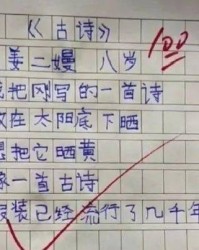 《古诗》
姜二嫚 八岁
100
把刚写的一首诗
在太阳底下晒
把它晒黄
一首古诗
装已经流行了几千年